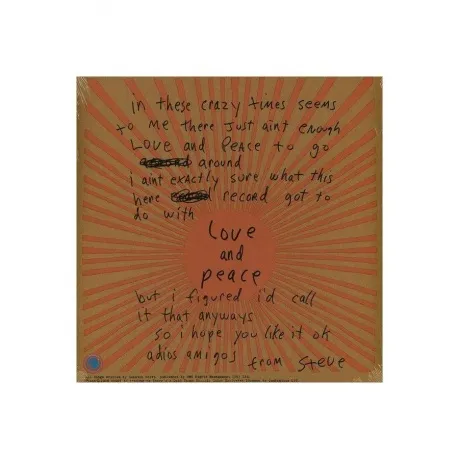 in these crazy times seems
to me there just aint enough
LOVE and PEACE to go
around
i aint exactly sure what this
here record got to
do with
Love
and
peace
but i figured i'd call
it that anyways
so i hope you like it ok
adios amigos from Steve